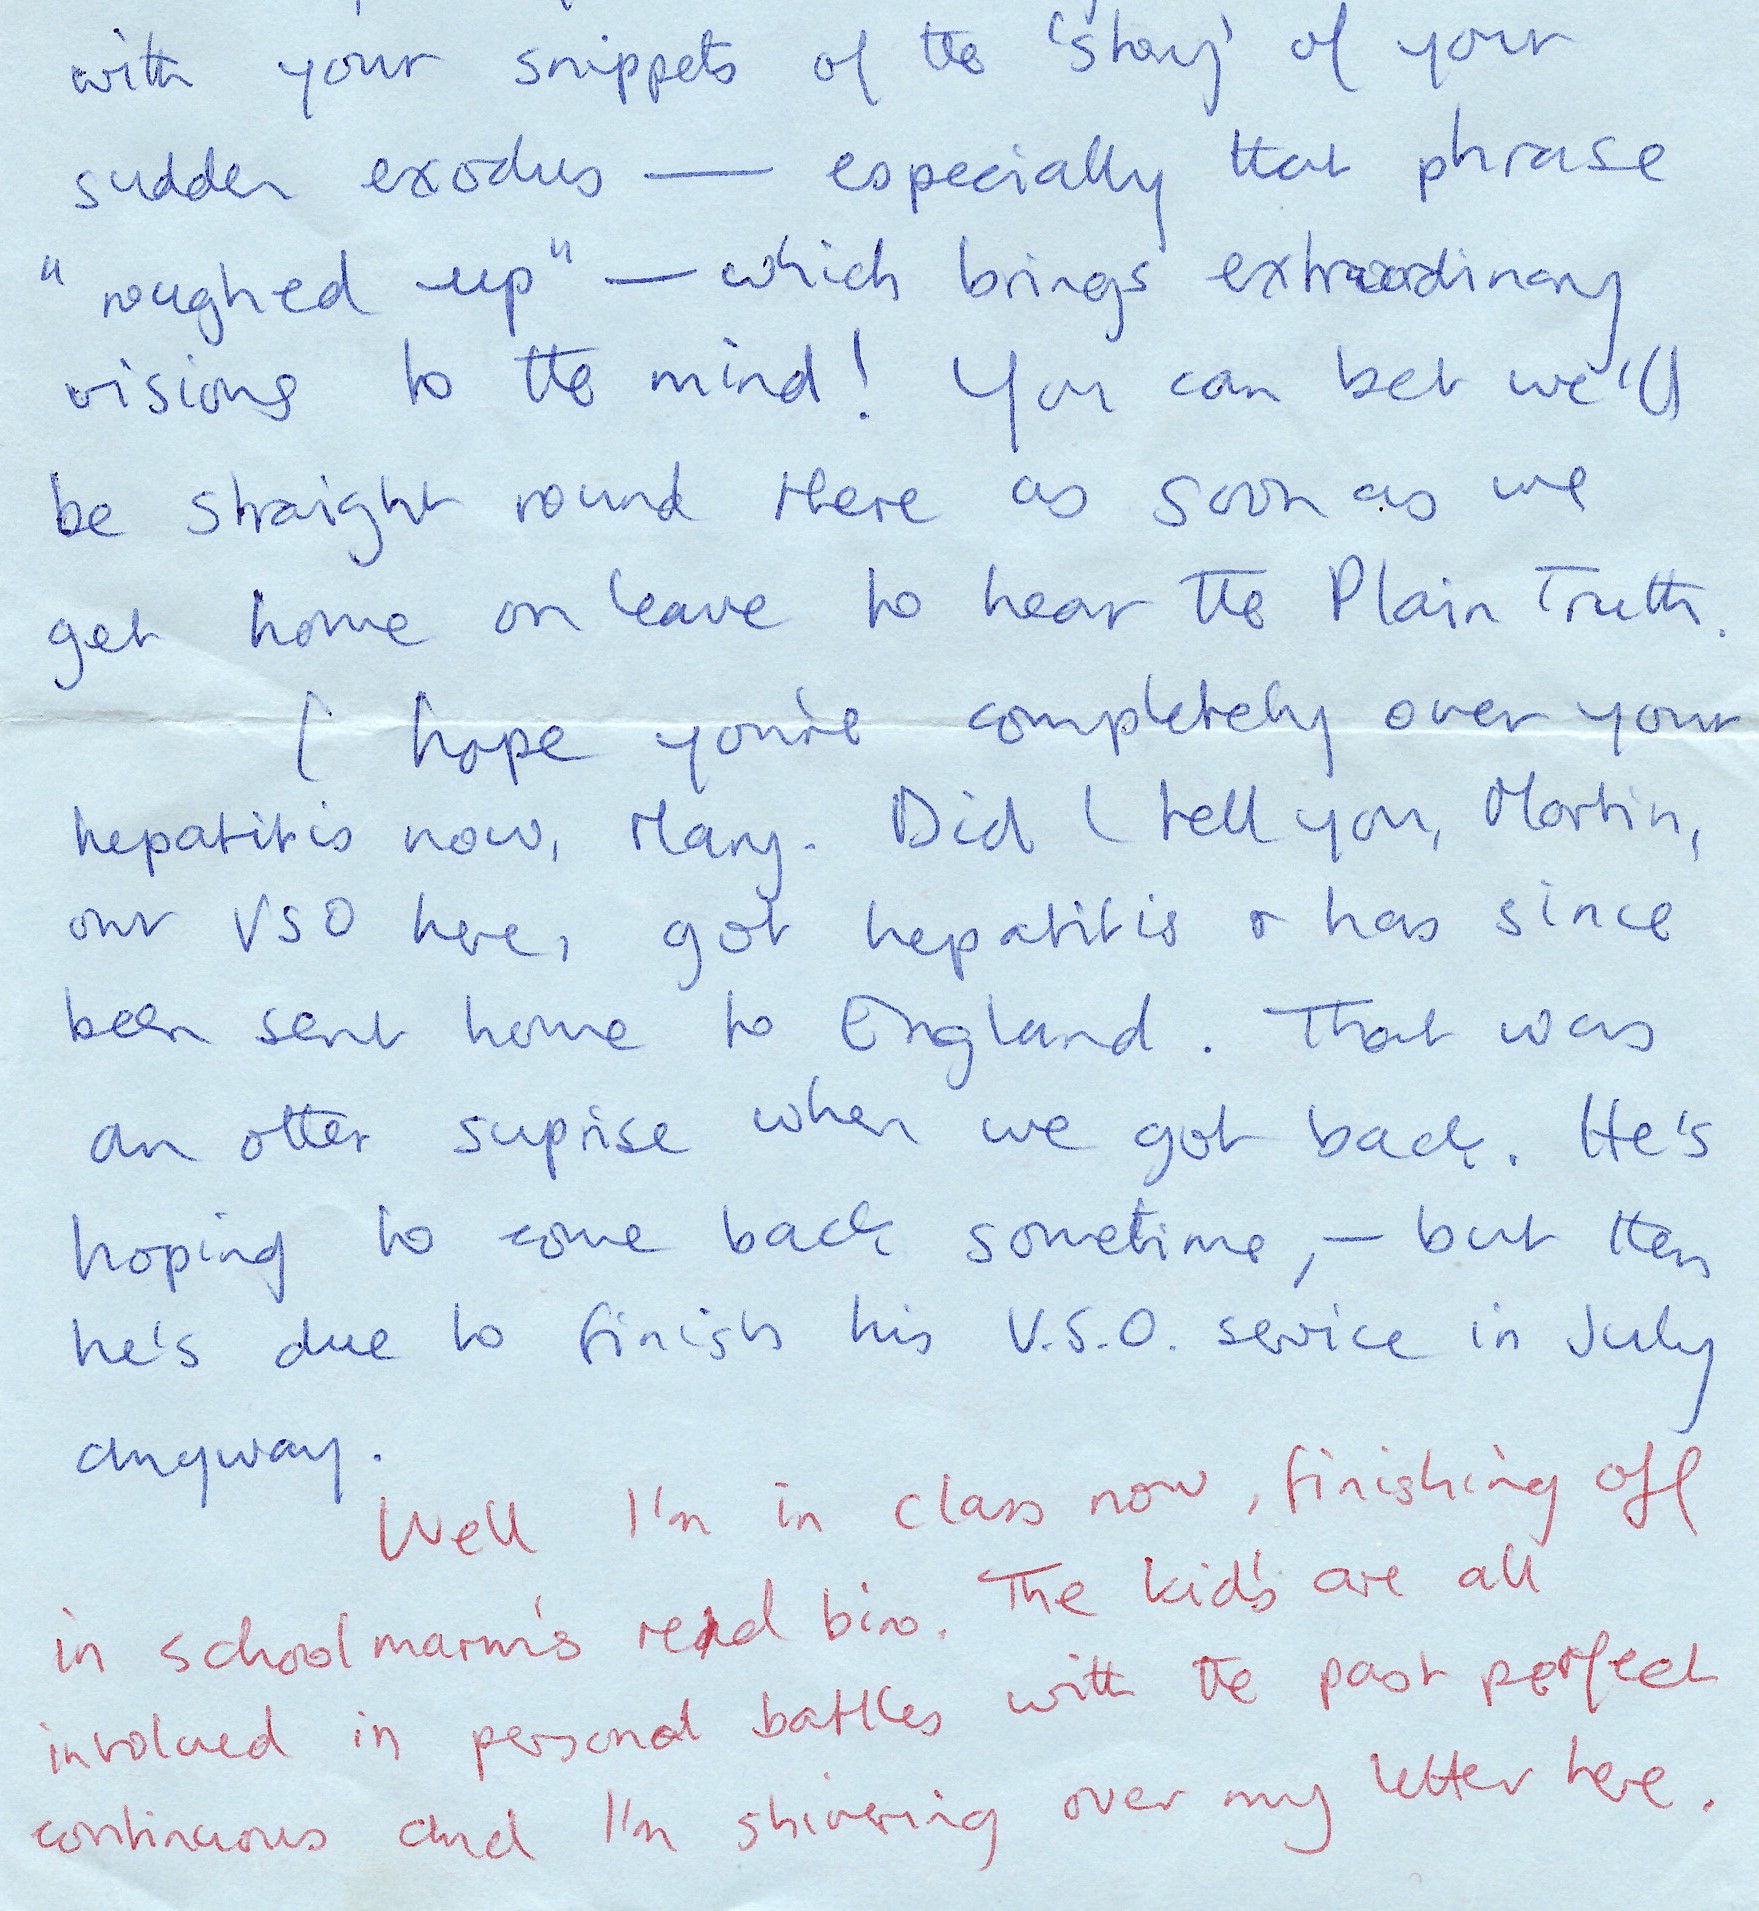 with your snippets of the 'story' of your
sudden exodus — especially that phrase
"roughed up" — which brings extraordinary
visions to the mind! You can bet we'll
be straight round there as soon as we
get home on leave to hear the Plain Truth.
I hope you're completely over your
hepatitis now, Mary. Did I tell you, Martin,
our VSO here, got hepatitis & has since
been sent home to England. That was
an other suprise when we got back. He's
hoping to come back sometime, — but then
he's due to finish his V.S.O. service in July
anyway.
Well I'm in class now, finishing off
in schoolmarm's red biro. The kid's are all
involved in personal battles with the past perfect
continuous and I'm shivering over my letter here.